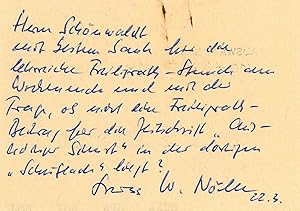 Herrn Schönwaldt
mit bestem Dank für die
lehrreiche Freiligrath-Stunde am
Wochenende und mit der
Frage, ob nicht ein Freiligrath-
Beitrag für die Zeitschrift
in der dortigen
"Schublade" liegt?
W. Nölle
22.3.